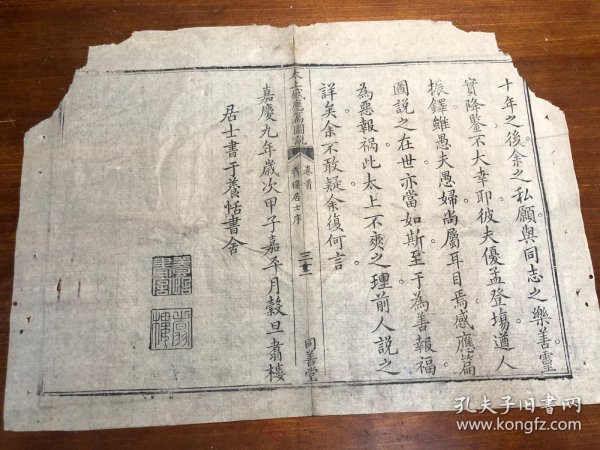 十年之後余之私願與同志之樂善靈
實降鑒不大幸耶彼夫優孟登塲道人
振鐸雖愚夫愚婦尚屬耳目焉感應篇
圖說之在世亦當如斯至于為善報福
為惡報禍此太上不爽之理前人說之
詳矣余不敢疑余復何言
太上感應篇圖說
卷首
翁樓居士序
同善堂
嘉慶九年歲次甲子嘉平月穀旦翁樓
居士書于養恬書舍
養恬書屋
孔夫子旧书网
www.kongfz.com